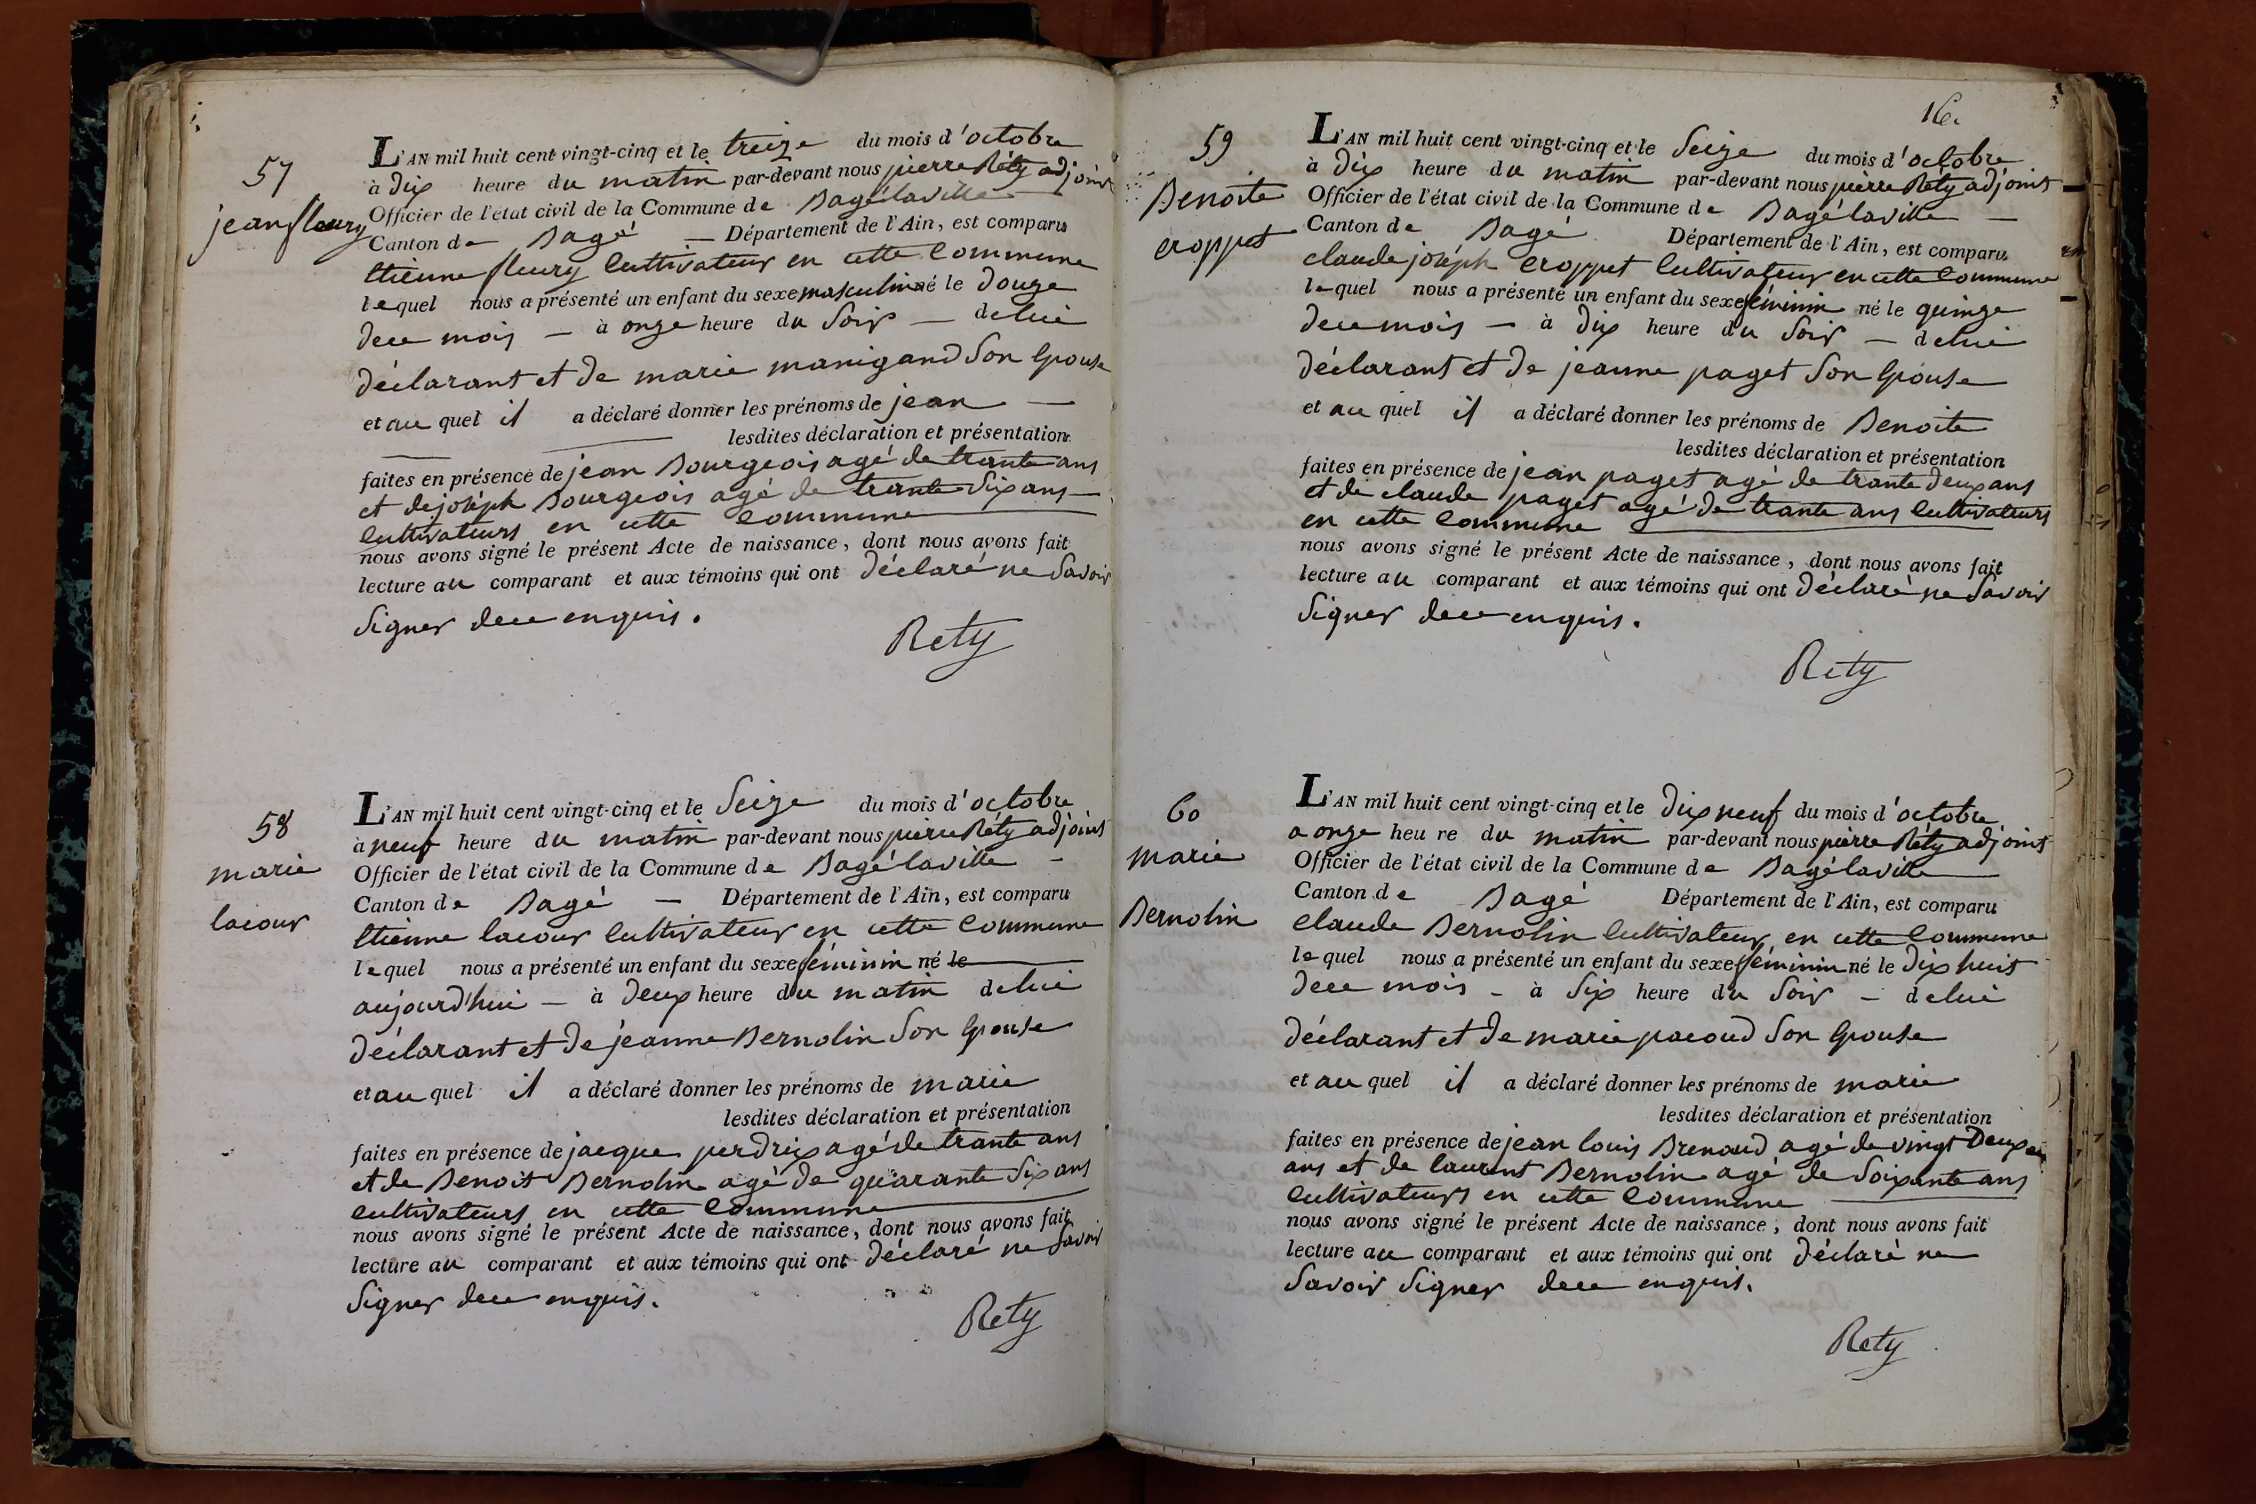 57
jean fleury
L'AN mil huit cent vingt-cinq et le treize du mois d'octobre
à dix heure du matin par-devant nous pierre Réty adjoint
Officier de l'état civil de la Commune de Bagélaville
Canton de Bagé — Département de l'Ain, est comparu
Etienne fleury Cultivateur en cette Commune
lequel nous a présenté un enfant du sexe masculin né le douze
de ce mois — à onze heure du soir — de lui
déclarant et de marie manigand son Epouse
et au quel il a déclaré donner les prénoms de jean —
lesdites déclaration et présentation
faites en présence de jean Bourgeois agé de trante ans
et de joséph Bourgeois agé de trante six ans
Cultivateurs en cette Commune
nous avons signé le présent Acte de naissance, dont nous avons fait
lecture au comparant et aux témoins qui ont déclaré ne savoir
signer de ce enquis.
Rety
58
marie
lacour
L'AN mil huit cent vingt-cinq et le seize du mois d'octobre
à neuf heure du matin par-devant nous pierre Réty adjoint
Officier de l'état civil de la Commune de Bagélaville —
Canton de Bagé — Département de l'Ain, est comparu
Etienne lacour Cultivateur en cette Commune
lequel nous a présenté un enfant du sexe féminin né le
aujourd'hui — à deux heure du matin de lui
déclarant et de jeanne Bernolin son Epouse
et au quel il a déclaré donner les prénoms de marie
lesdites déclaration et présentation
faites en présence de jacque perdrix agé de trante ans
et de Benoit Bernolin agé de quarante six ans
cultivateurs en cette Commune
nous avons signé le présent Acte de naissance, dont nous avons fait
lecture au comparant et aux témoins qui ont déclaré ne savoir
signer de ce enquis.
Rety
16.
59
Benoite
croppet
L'AN mil huit cent vingt-cinq et le seize du mois d'octobre
à dix heure du matin par-devant nous pierre Réty adjoint
Officier de l'état civil de la Commune de Bagélaville —
Canton de Bagé Département de l'Ain, est comparu
claude joséph croppet Cultivateur en cette Commune
lequel nous a présenté un enfant du sexe féminin né le quinze
de ce mois — à dix heure du soir — de lui
déclarant et de jeanne paget son Epouse
et au quel il a déclaré donner les prénoms de Benoite
lesdites déclaration et présentation
faites en présence de jean paget agé de trante deux ans
et de claude paget agé de trante ans Cultivateurs
en cette Commune
nous avons signé le présent Acte de naissance, dont nous avons fait
lecture au comparant et aux témoins qui ont déclaré ne savoir
signer de ce enquis.
Rety
60
marie
Bernolin
L'AN mil huit cent vingt-cinq et le dix neuf du mois d'octobre
a onze heu re du matin par-devant nous pierre Réty adjoint
Officier de l'état civil de la Commune de Bagélaville
Canton de Bagé Département de l'Ain, est comparu
Claude Bernolin Cultivateur en cette Commune
lequel nous a présenté un enfant du sexe féminin né le dix huit
de ce mois - à six heure du soir — de lui
déclarant et de marie pacoud son Epouse
et au quel il a déclaré donner les prénoms de marie
lesdites déclaration et présentation
faites en présence de jean louis Brenaud agé de vingt deux
ans et de laurent Bernolin agé de soixante ans
Cultivateurs en cette Commune
nous avons signé le présent Acte de naissance, dont nous avons fait
lecture au comparant et aux témoins qui ont déclaré ne
savoir signer de ce enquis.
Rety